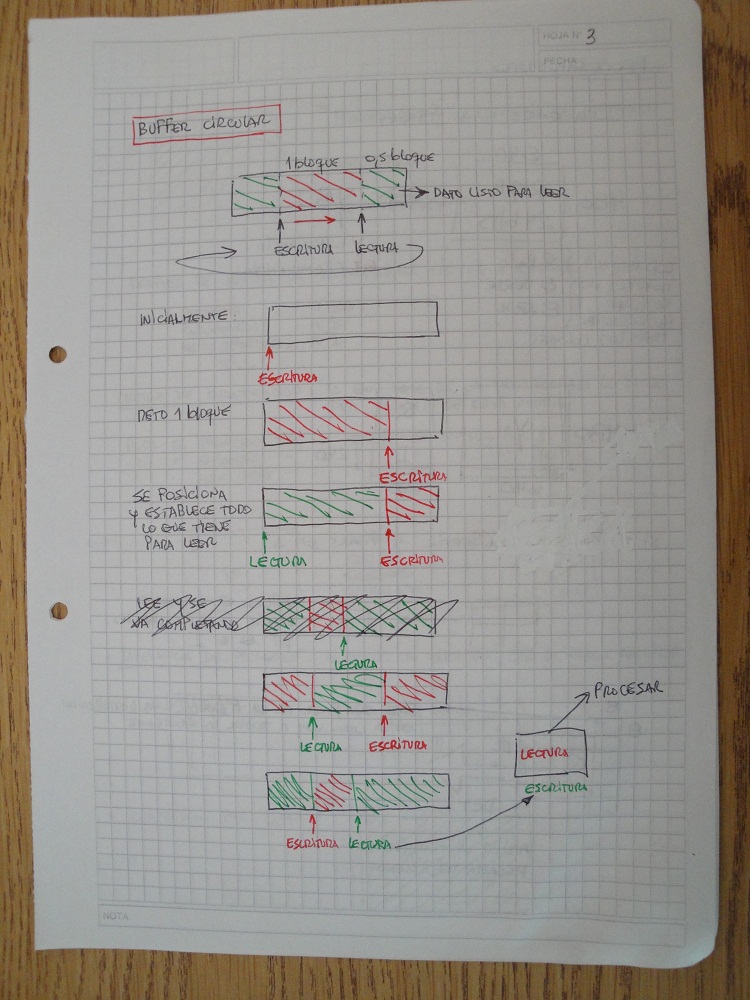 HOJA Nº 3
FECHA
BUFFER CIRCULAR
1 bloque 0,5 bloque
DATO LISTO PARA LEER
ESCRITURA LECTURA
INICIALMENTE:
ESCRITURA
METO 1 bloque
ESCRITURA
SE POSICIONA
Y ESTABLECE TODO
LO QUE TIENE
PARA LEER
LECTURA ESCRITURA
LEE Y SE
VA COMPLETANDO
LECTURA
PROCESAR
LECTURA ESCRITURA
LECTURA
ESCRITURA
ESCRITURA LECTURA
NOTA